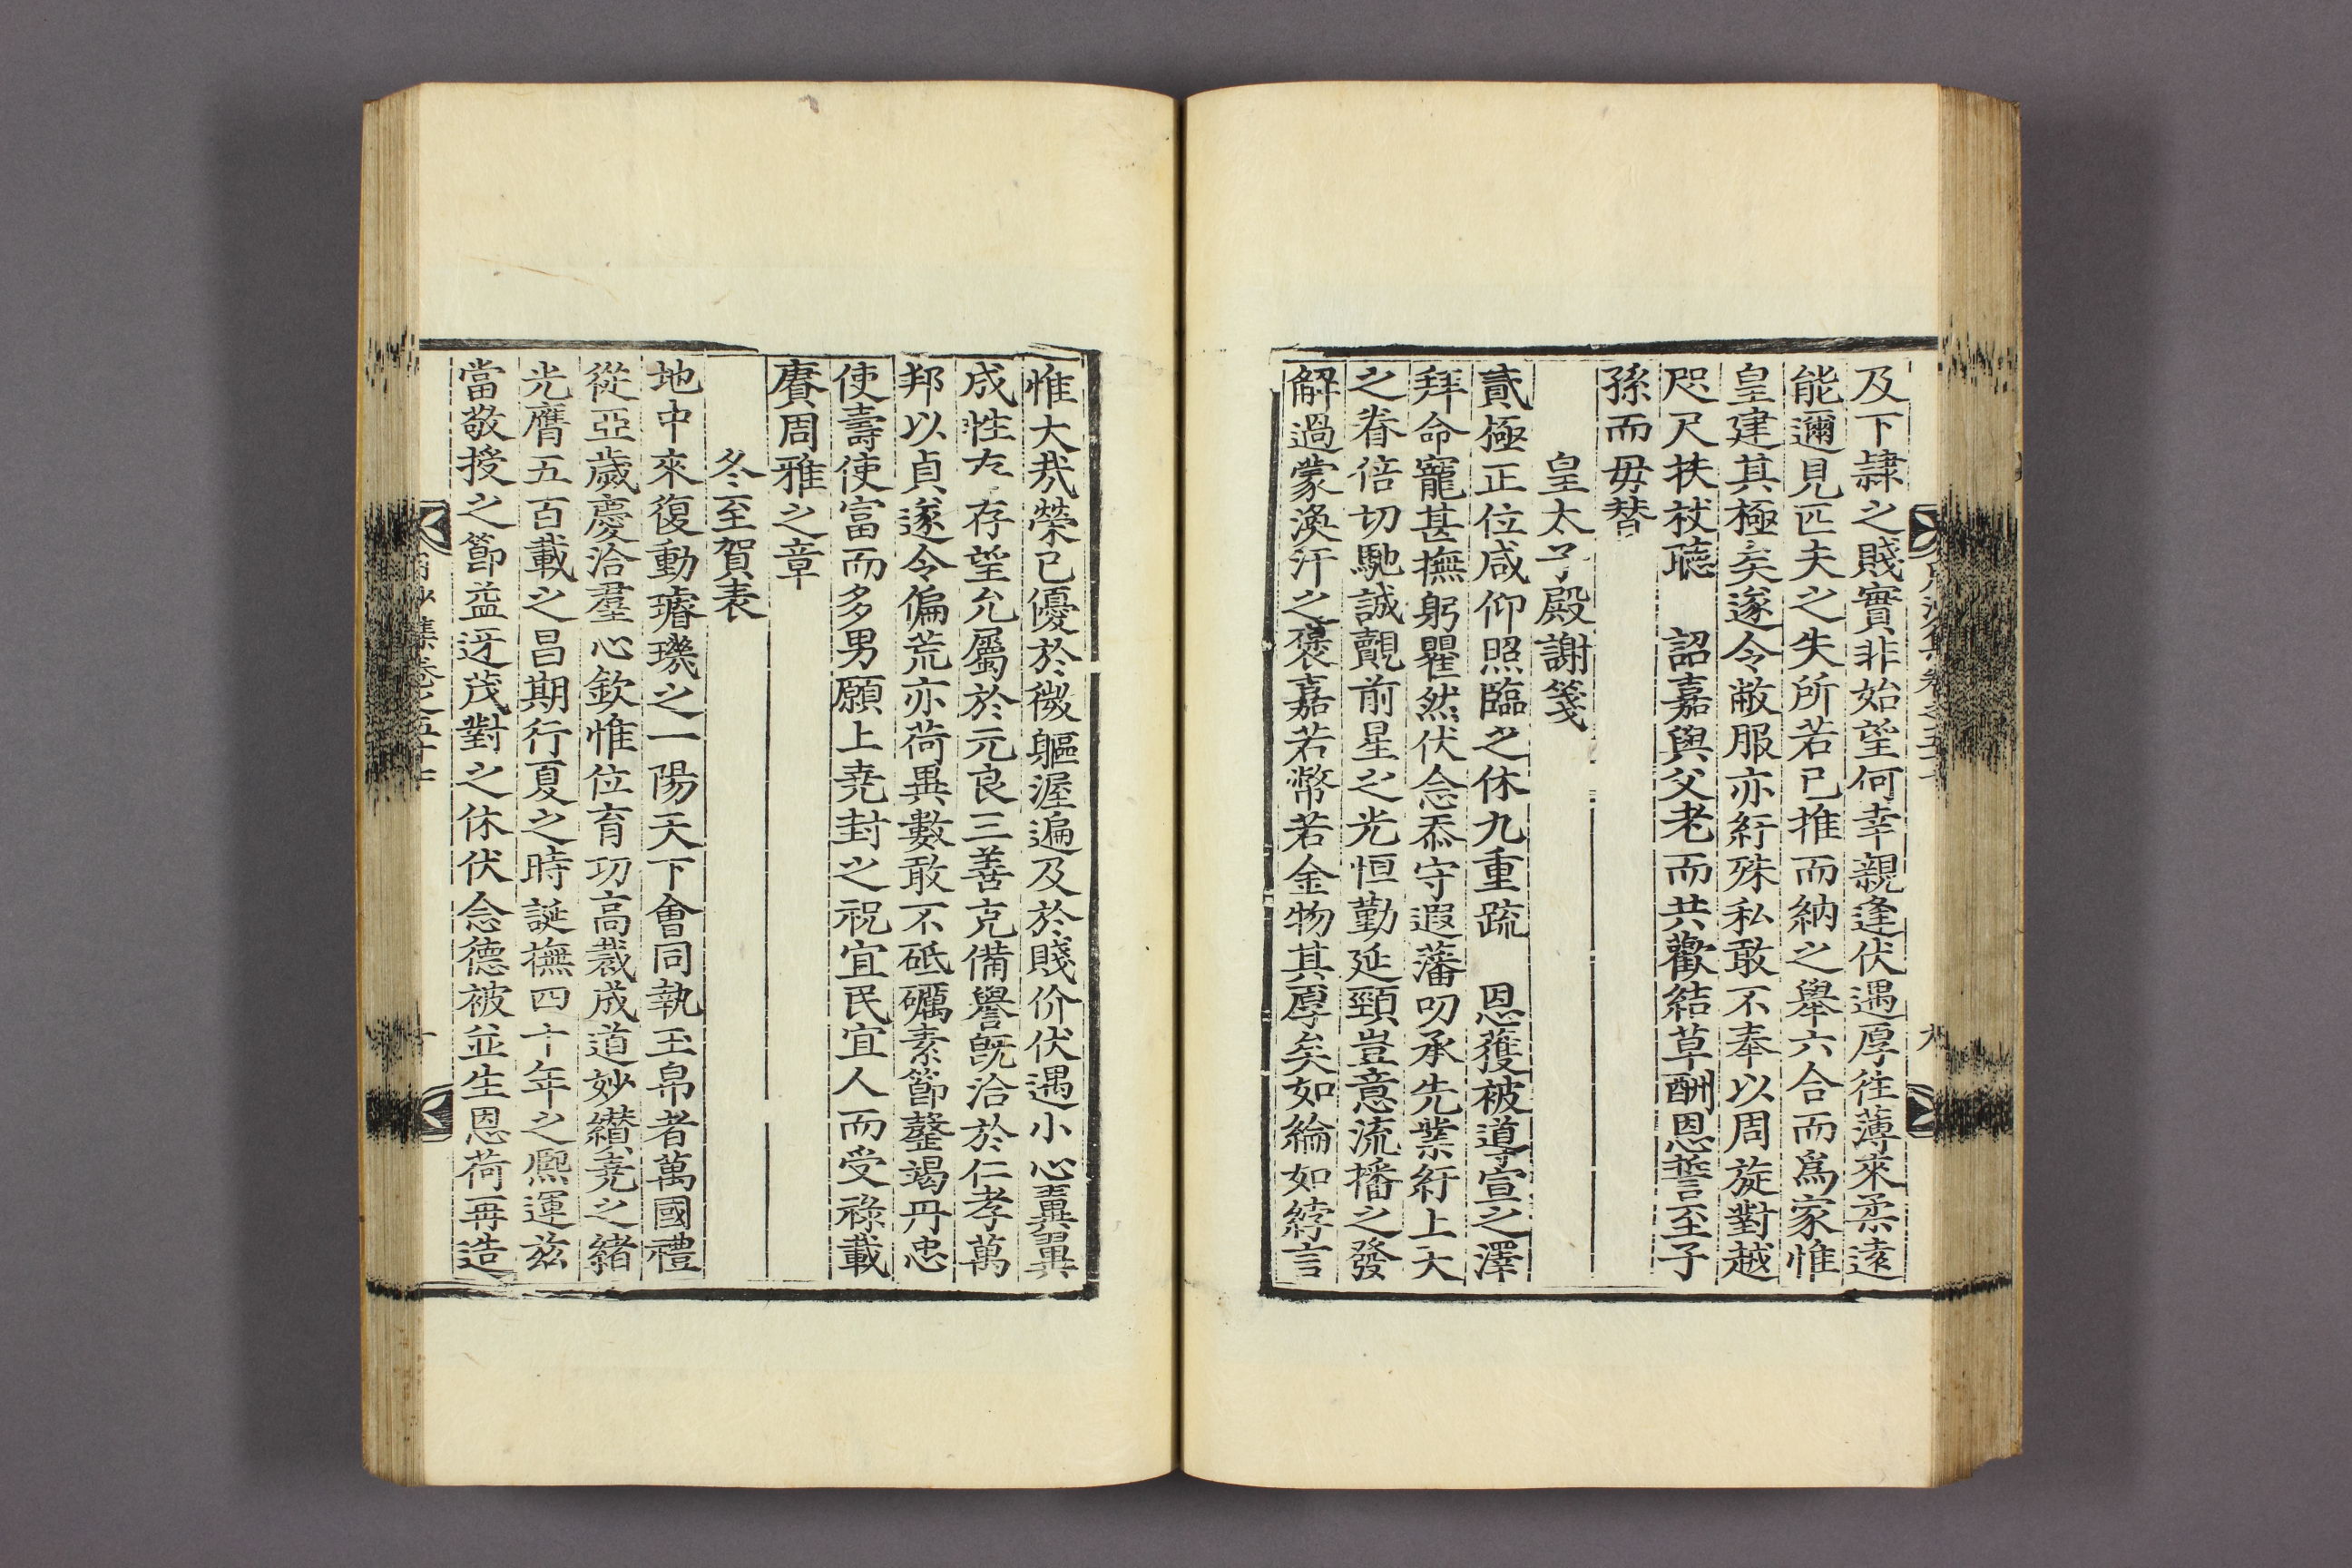 及下隷之賤實非始望何幸親逢伏遇厚往薄來柔遠
能邇見匹夫之失所若已推而納之擧六合而爲家惟
皇建其極矣遂令敝服亦紆殊私敢不奉以周旋對越
咫尺扶杖聽 詔嘉與父老而共歡結草酬恩誓至子
孫而毋替
皇太子殿謝箋
貳極正位咸仰照臨之休九重疏 恩獲被導宣之澤
拜命寵甚撫躬瞿然伏念忝守遐藩叨承先業紆上天
之眷倍切馳誠覿前星之光恒勤延頸豈意流播之發
解過蒙渙汗之褒嘉若幣若金物其厚矣如綸如綍言
惟大㦲榮已優於微軀渥遍及於賤价伏遇小心翼翼
成性存存望允屬於元良三善克備譽旣洽於仁孝萬
邦以貞遂令偏荒亦荷異數敢不砥礪素節罄竭丹忠
使壽使富而多男願上堯封之祝宜民宜人而受祿載
賡周雅之章
冬至賀表
地中來復動璿璣之一陽天下會同執玉帛者萬國禮
從亞歲慶洽羣心欽惟位育功高裁成道妙纘堯之緖
光膺五百載之昌期行夏之時誕撫四十年之熙運玆
當敬授之節益迓茂對之休伏念德被並生恩荷再造